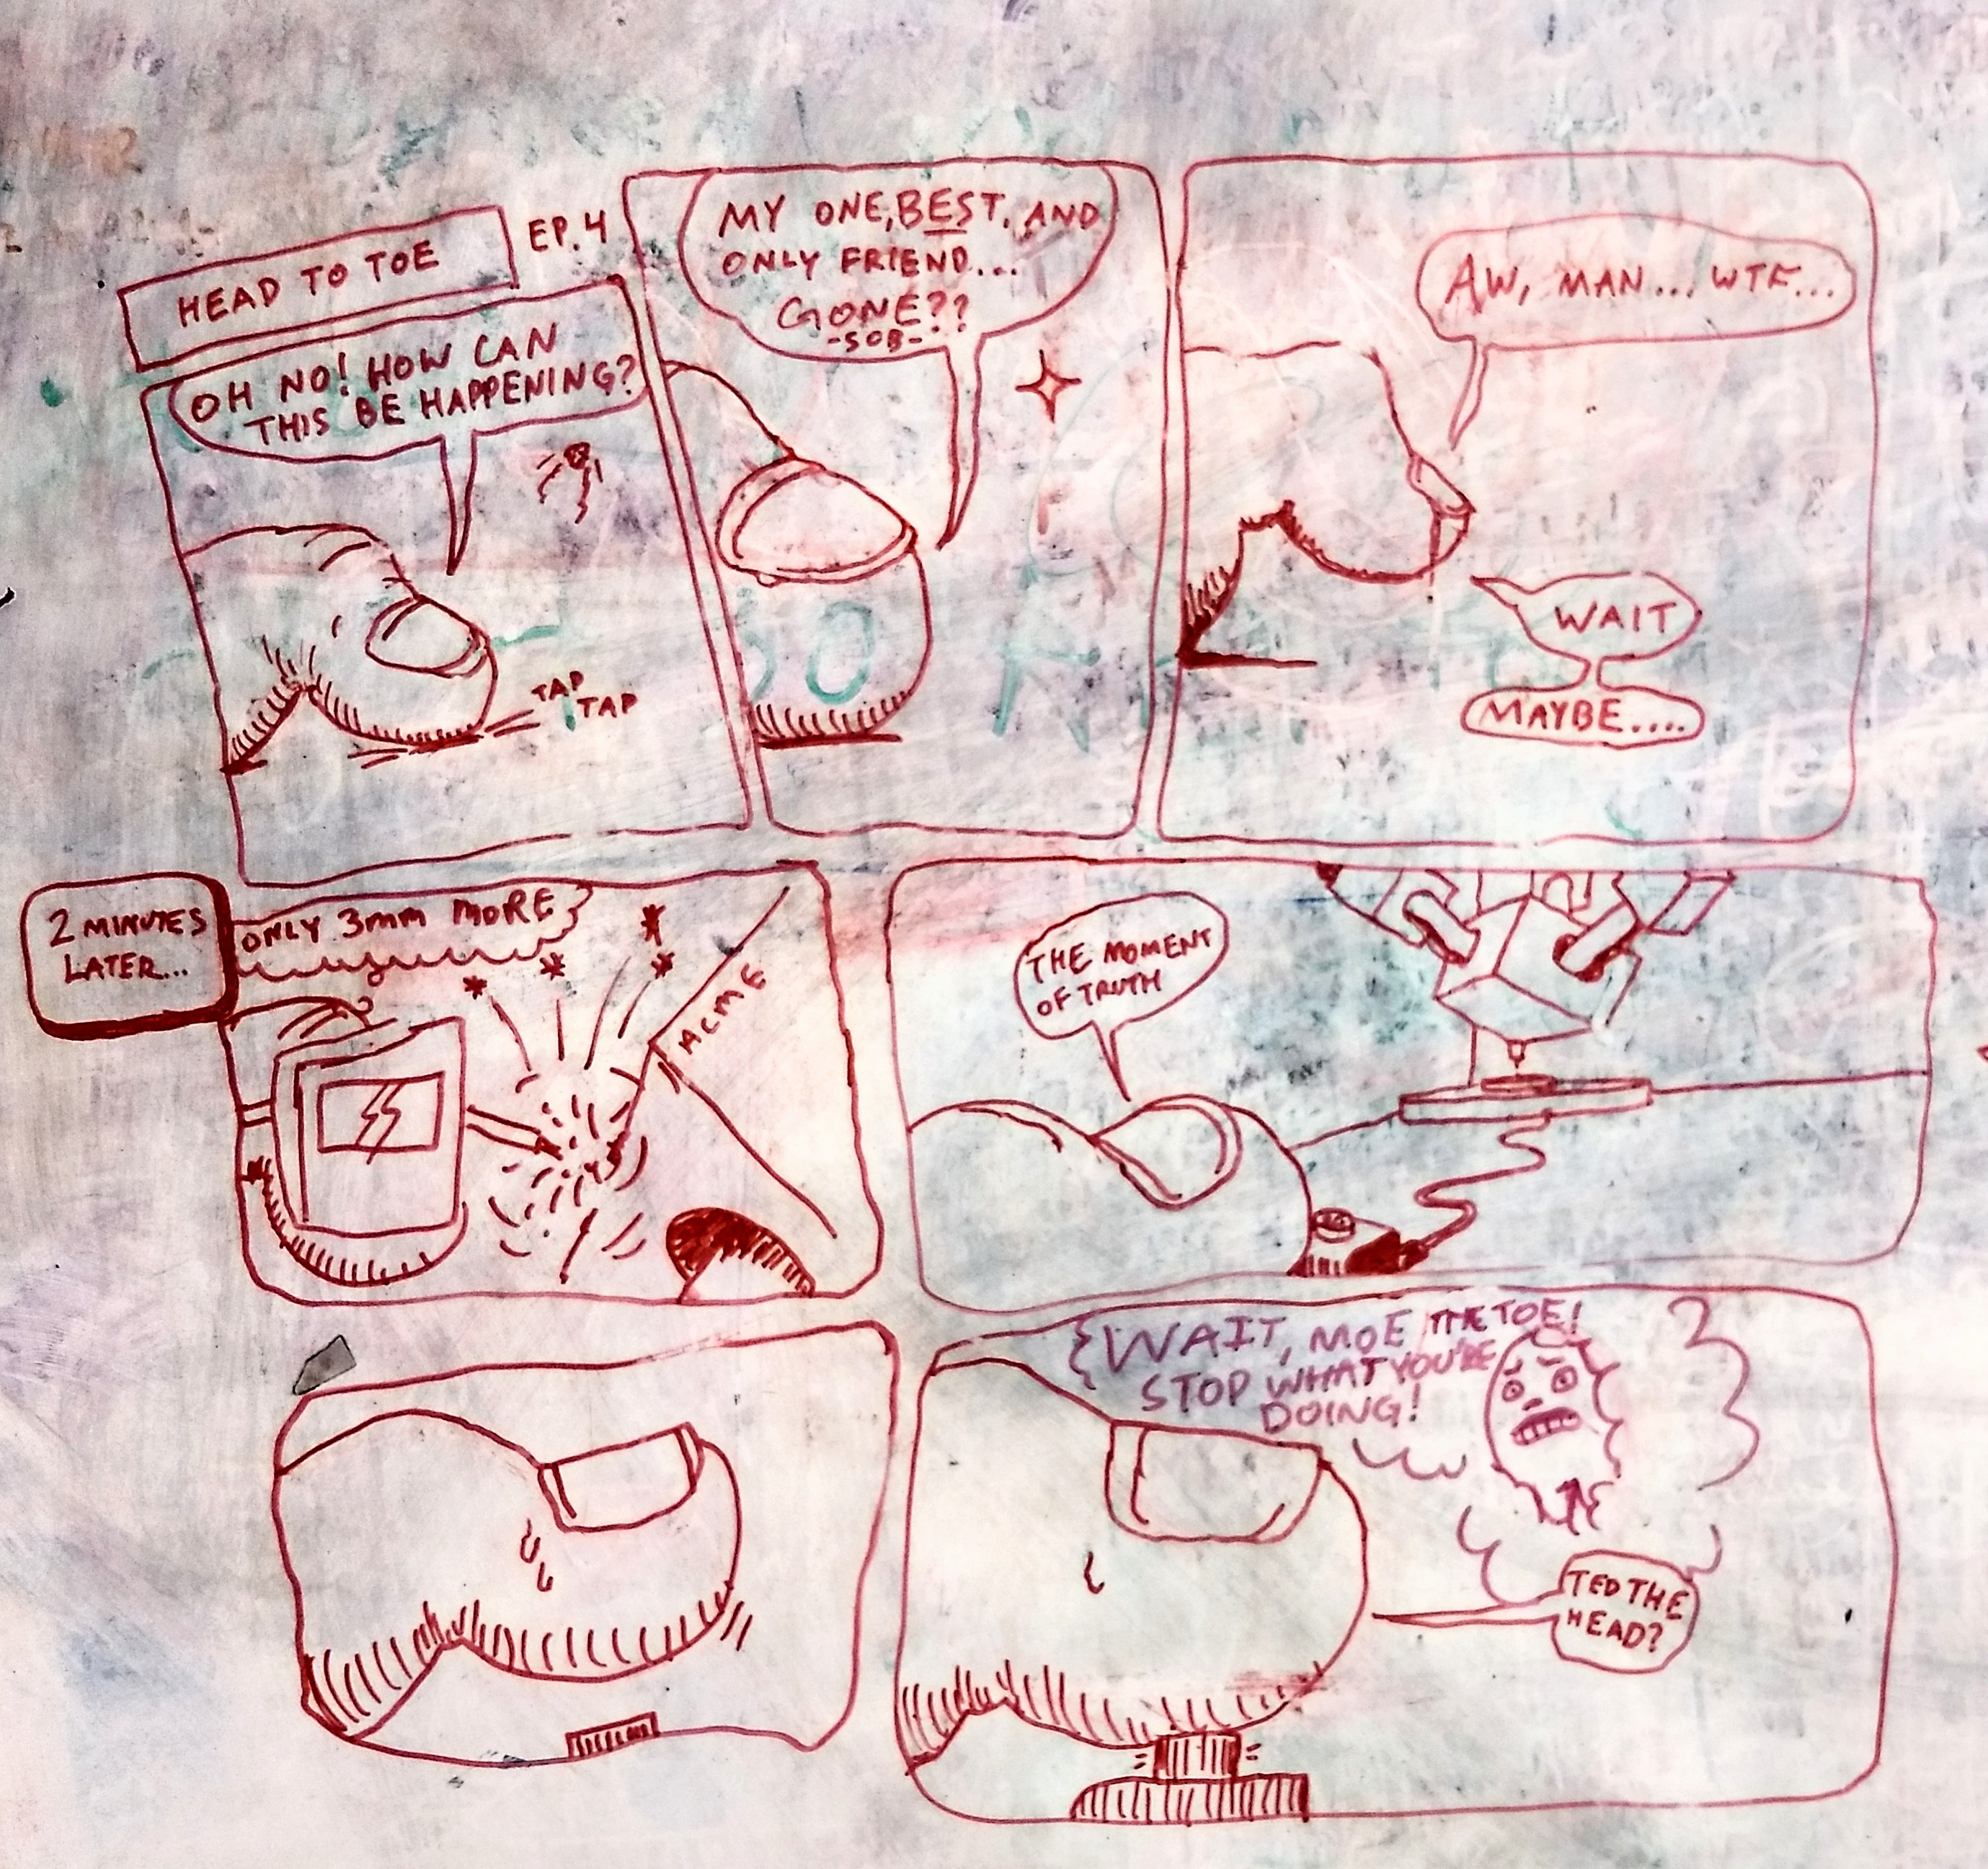 HEAD TO TOE
EP. 4
OH NO! HOW CAN
THIS BE HAPPENING?
TAP
TAP
MY ONE, BEST, AND
ONLY FRIEND...
GONE??
-SOB-
AW, MAN... WTF...
WAIT
MAYBE.....
2 MINUTES
LATER...
ONLY 3mm MORE
ACME
THE MOMENT
OF TRUTH
WAIT, MOE THE TOE!
STOP WHAT YOU'RE
DOING!
TED THE
HEAD?